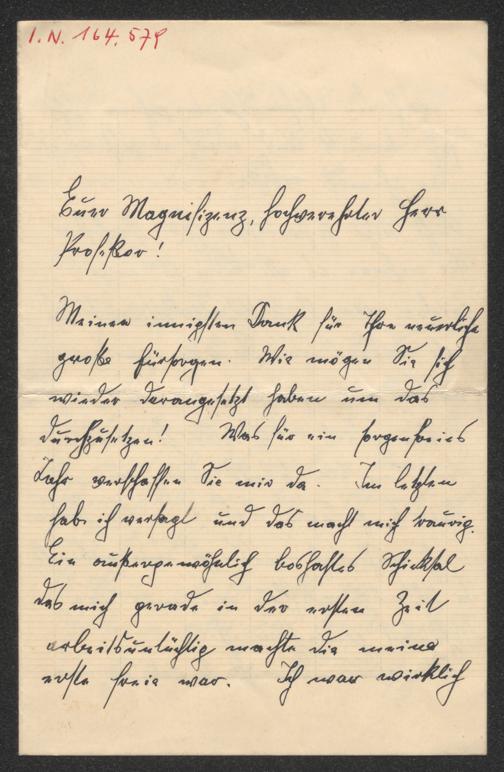 I.N. 164.579
Euer Magnifizenz, hochverehrter Herr
Professor!
Meinen innigsten Dank für Ihre neuerliche
große Fürsorgen. Wie mögen Sie sich
wieder darangesetzt haben um das
durchzusetzen! Was für ein sorgenfreies
Jahr verschaffen Sie mir da. Im letzten
hab ich versagt und das macht mich traurig.
Ein außergewöhnlich boshaftes Schicksal
das mich gerade in der ersten Zeit
arbeitsuntüchtig machte die meine
erste freie war. Ich war wirklich